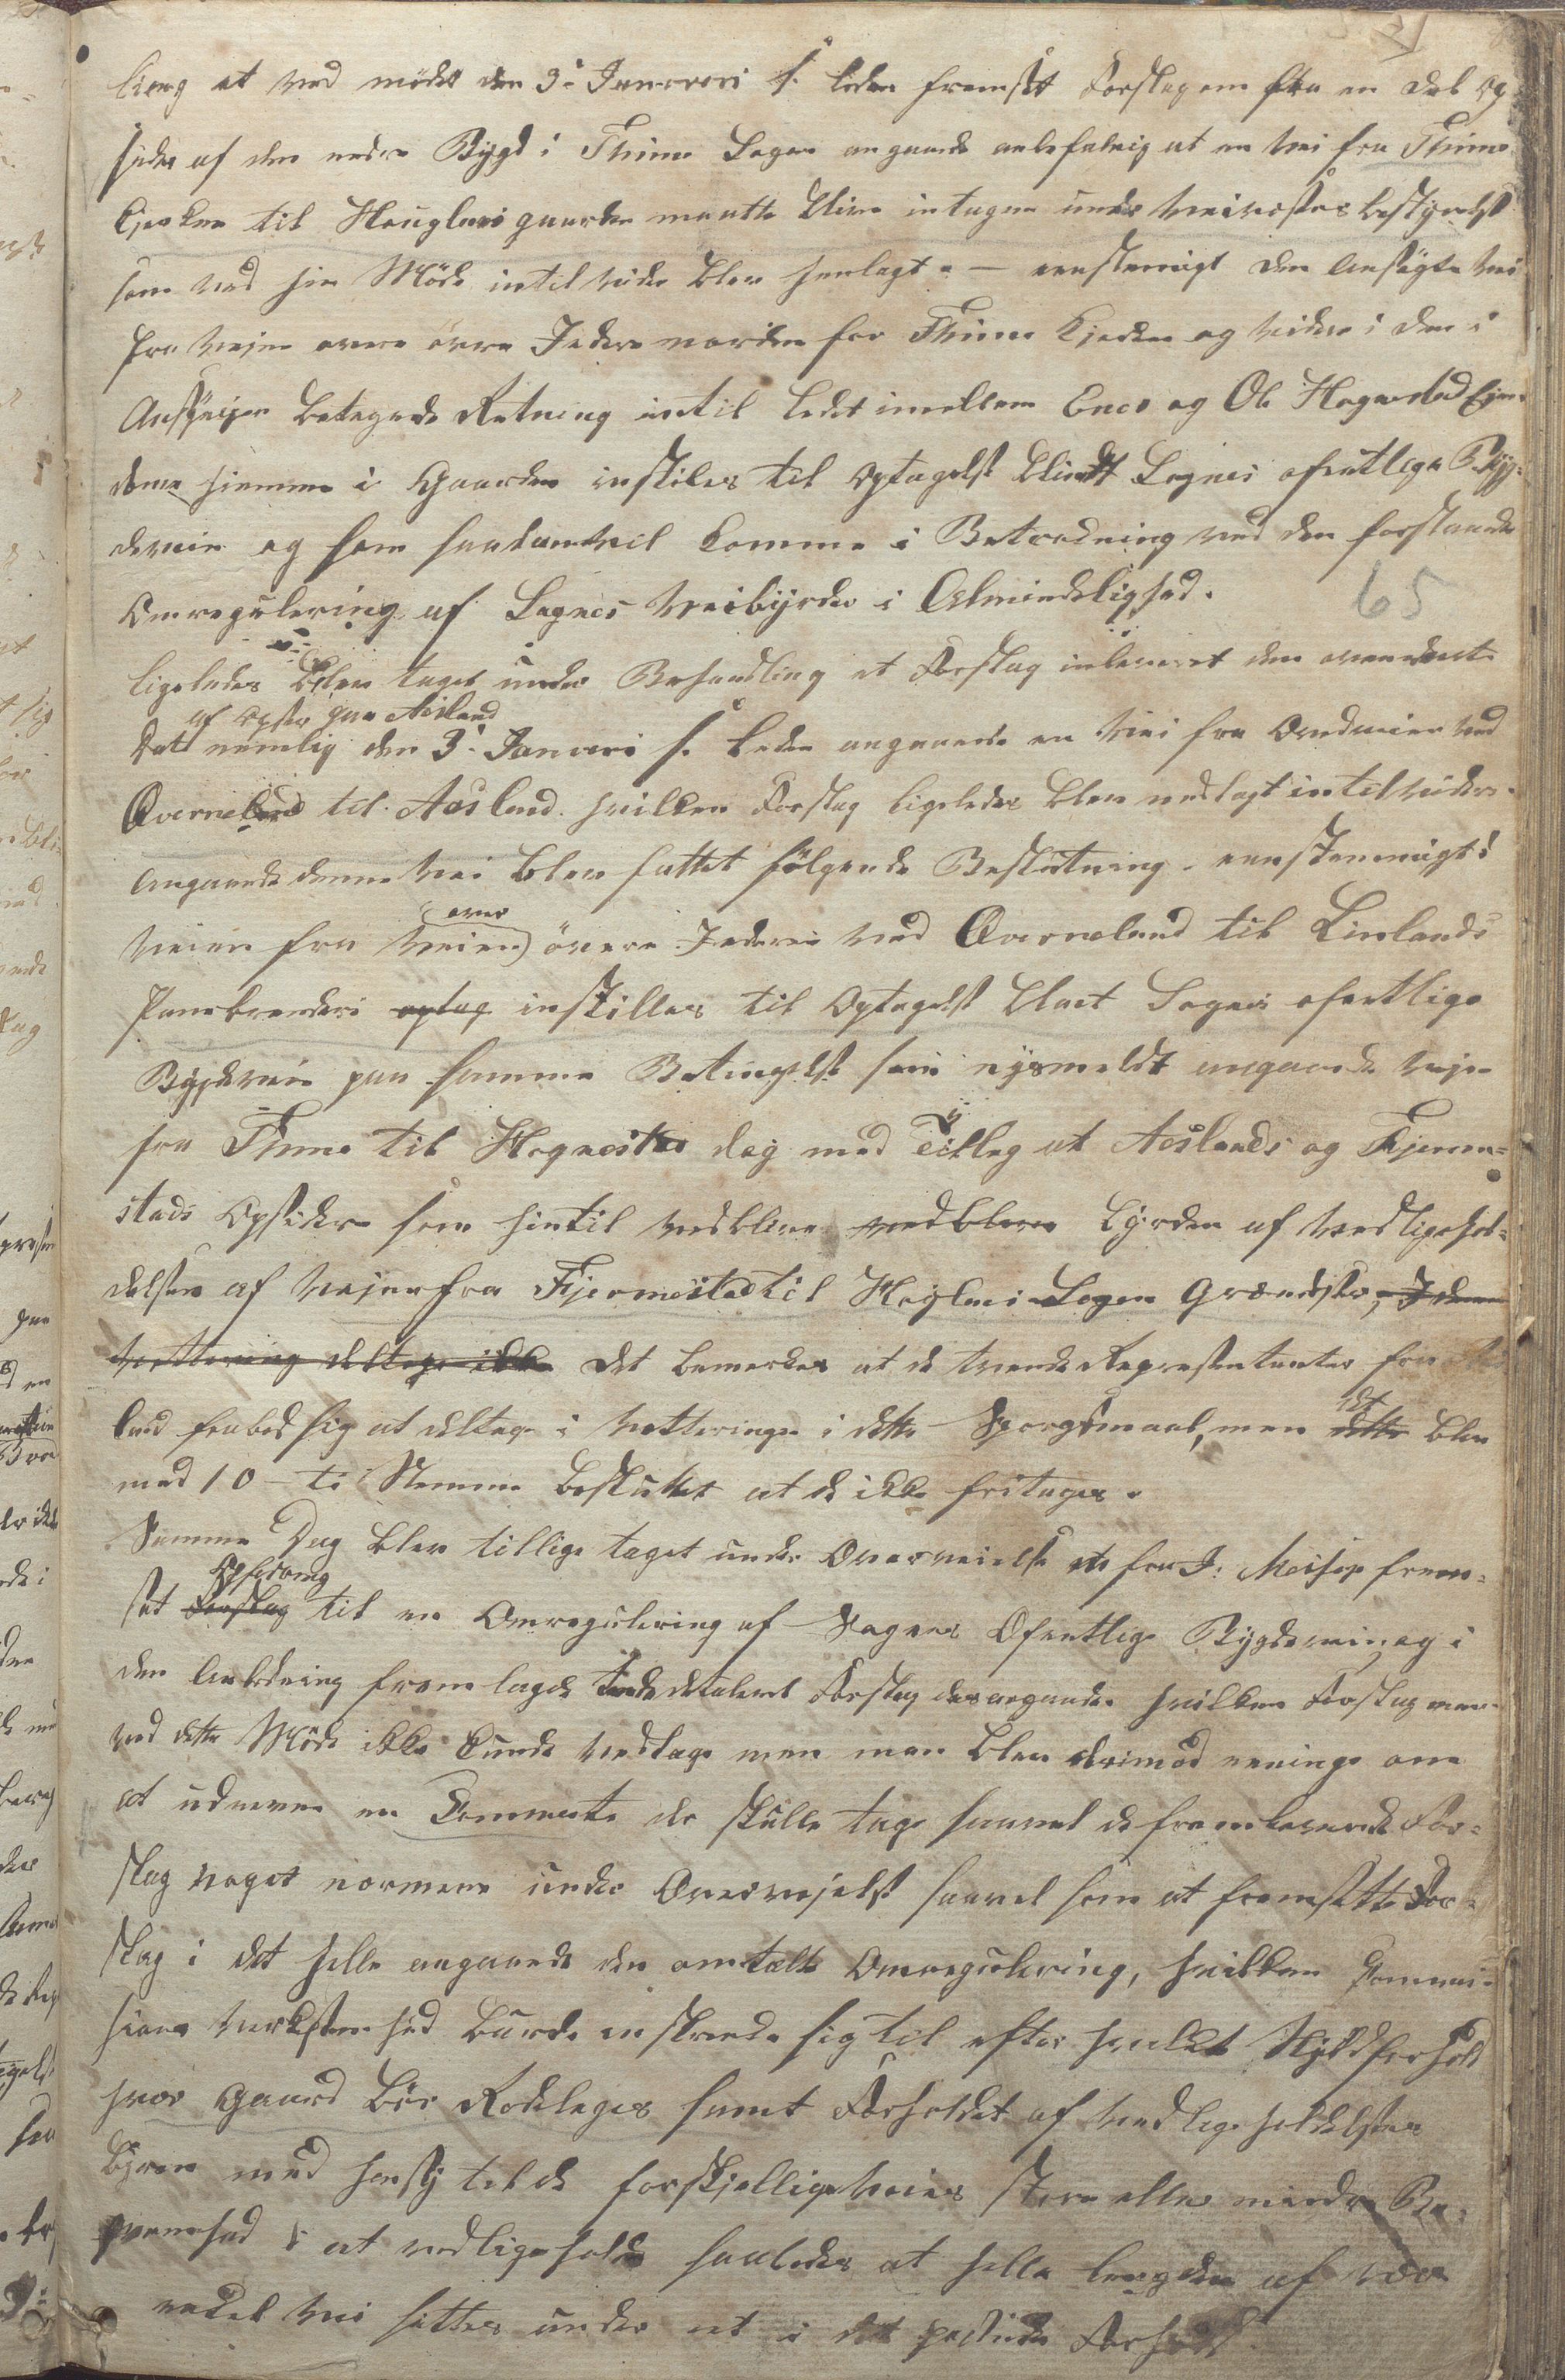 at ved mödet den 3. Januari s. leden fremsat Forslag om fra en Del Op
sidere af den nedre Bygd i Thime Sogn angaaende anbefaling at en Vei fra Thime
Kjerken til Høuglands gaarden maatte blive intagen under Veivesenets bestyrelse
som ved hin Möde intil videre blev henlagt. — eenstemigt den Ansögte Vei
fra Vejen over övre Jedern norden for Thime Kjerken og videre i den i
Ansögningen betegnede Retning intil Ledet imellem Enes og Ole Hognestad Ejen-
dome hjemme i Gaarden instiles til Optagelse blandt Sognets ofentlige Byg-
deveie og som saadan vil komme i Betragtning ved den forestaaende
Omregulering af Sognets Veibyrder i Almindelighed.
65
ligeledes blev taget under Behandling et Forslag inleveret den ovennævnte
af Opsidr. paa Aasland
Dato nemlig den 3. Januari s. leden angaaende en Vei fra Veien ved
Qverneland til Aasland hvilken Forslag ligeledes blev nedlagt intil videre.
Angaaende denne Vei blev fattet fölgende Beslutning. eenstemmigt:
over
Veien fra Veien övere Jederen ved Qverneland til Linlands
optag instilles til Optagelse blant Sognets ofentlige
Bygdeveie paa samme Betingelse som nysmeldt angaaende Vejen
fra Thime til Hognestad dog med Tillæg at Aaslands og Fjerme-
stads Opsidere som hintil vedblive vedblive byrden af Vedligehol-
delsen af Vejen fra Fjermestad til Høylands Sogns Grændse, I denne
Vottering deltoge ikke det bemerkes at de tvende Representanter fra Aas
land frabad sig at deltage i Votteringen i dette Spørgsmaal, men dette det blev
med 10 – ti Stemmer besluttet at de ikke fritages.
Samme Dag blev tillige taget under Overveielse et for J: frem-
Opfordring
sat Forslag til en Omregulering af Sognets Ofentlige Bygdevei, og i
den Anledning fremlagde detaleret Forslag desangaaende hvilken Forslag man
ved dette Möde ikke kunde vedtage men man blev derimod eenige om
at udnevne en Kommite der skulle tage saavel de fremleverede For-
slag noget nærmere under Overvejelse saavel som at fremsætte For-
slag i det helle angaaende den omtalte Omregulering, hvilken Kommi-
sions Virksomhed burde inskrænke sig til efter hvilket Skyldforhold
hver Gaard bör Rodelegges samt Forholdet af Vedligeholdelsens
Byrden med hensy til de forskjellige Veies störe eller mindre Be-
qvemhed i at vedligeholde saaledes at helle Lengden af hver
enkel Vei settes under et i det Forhold.